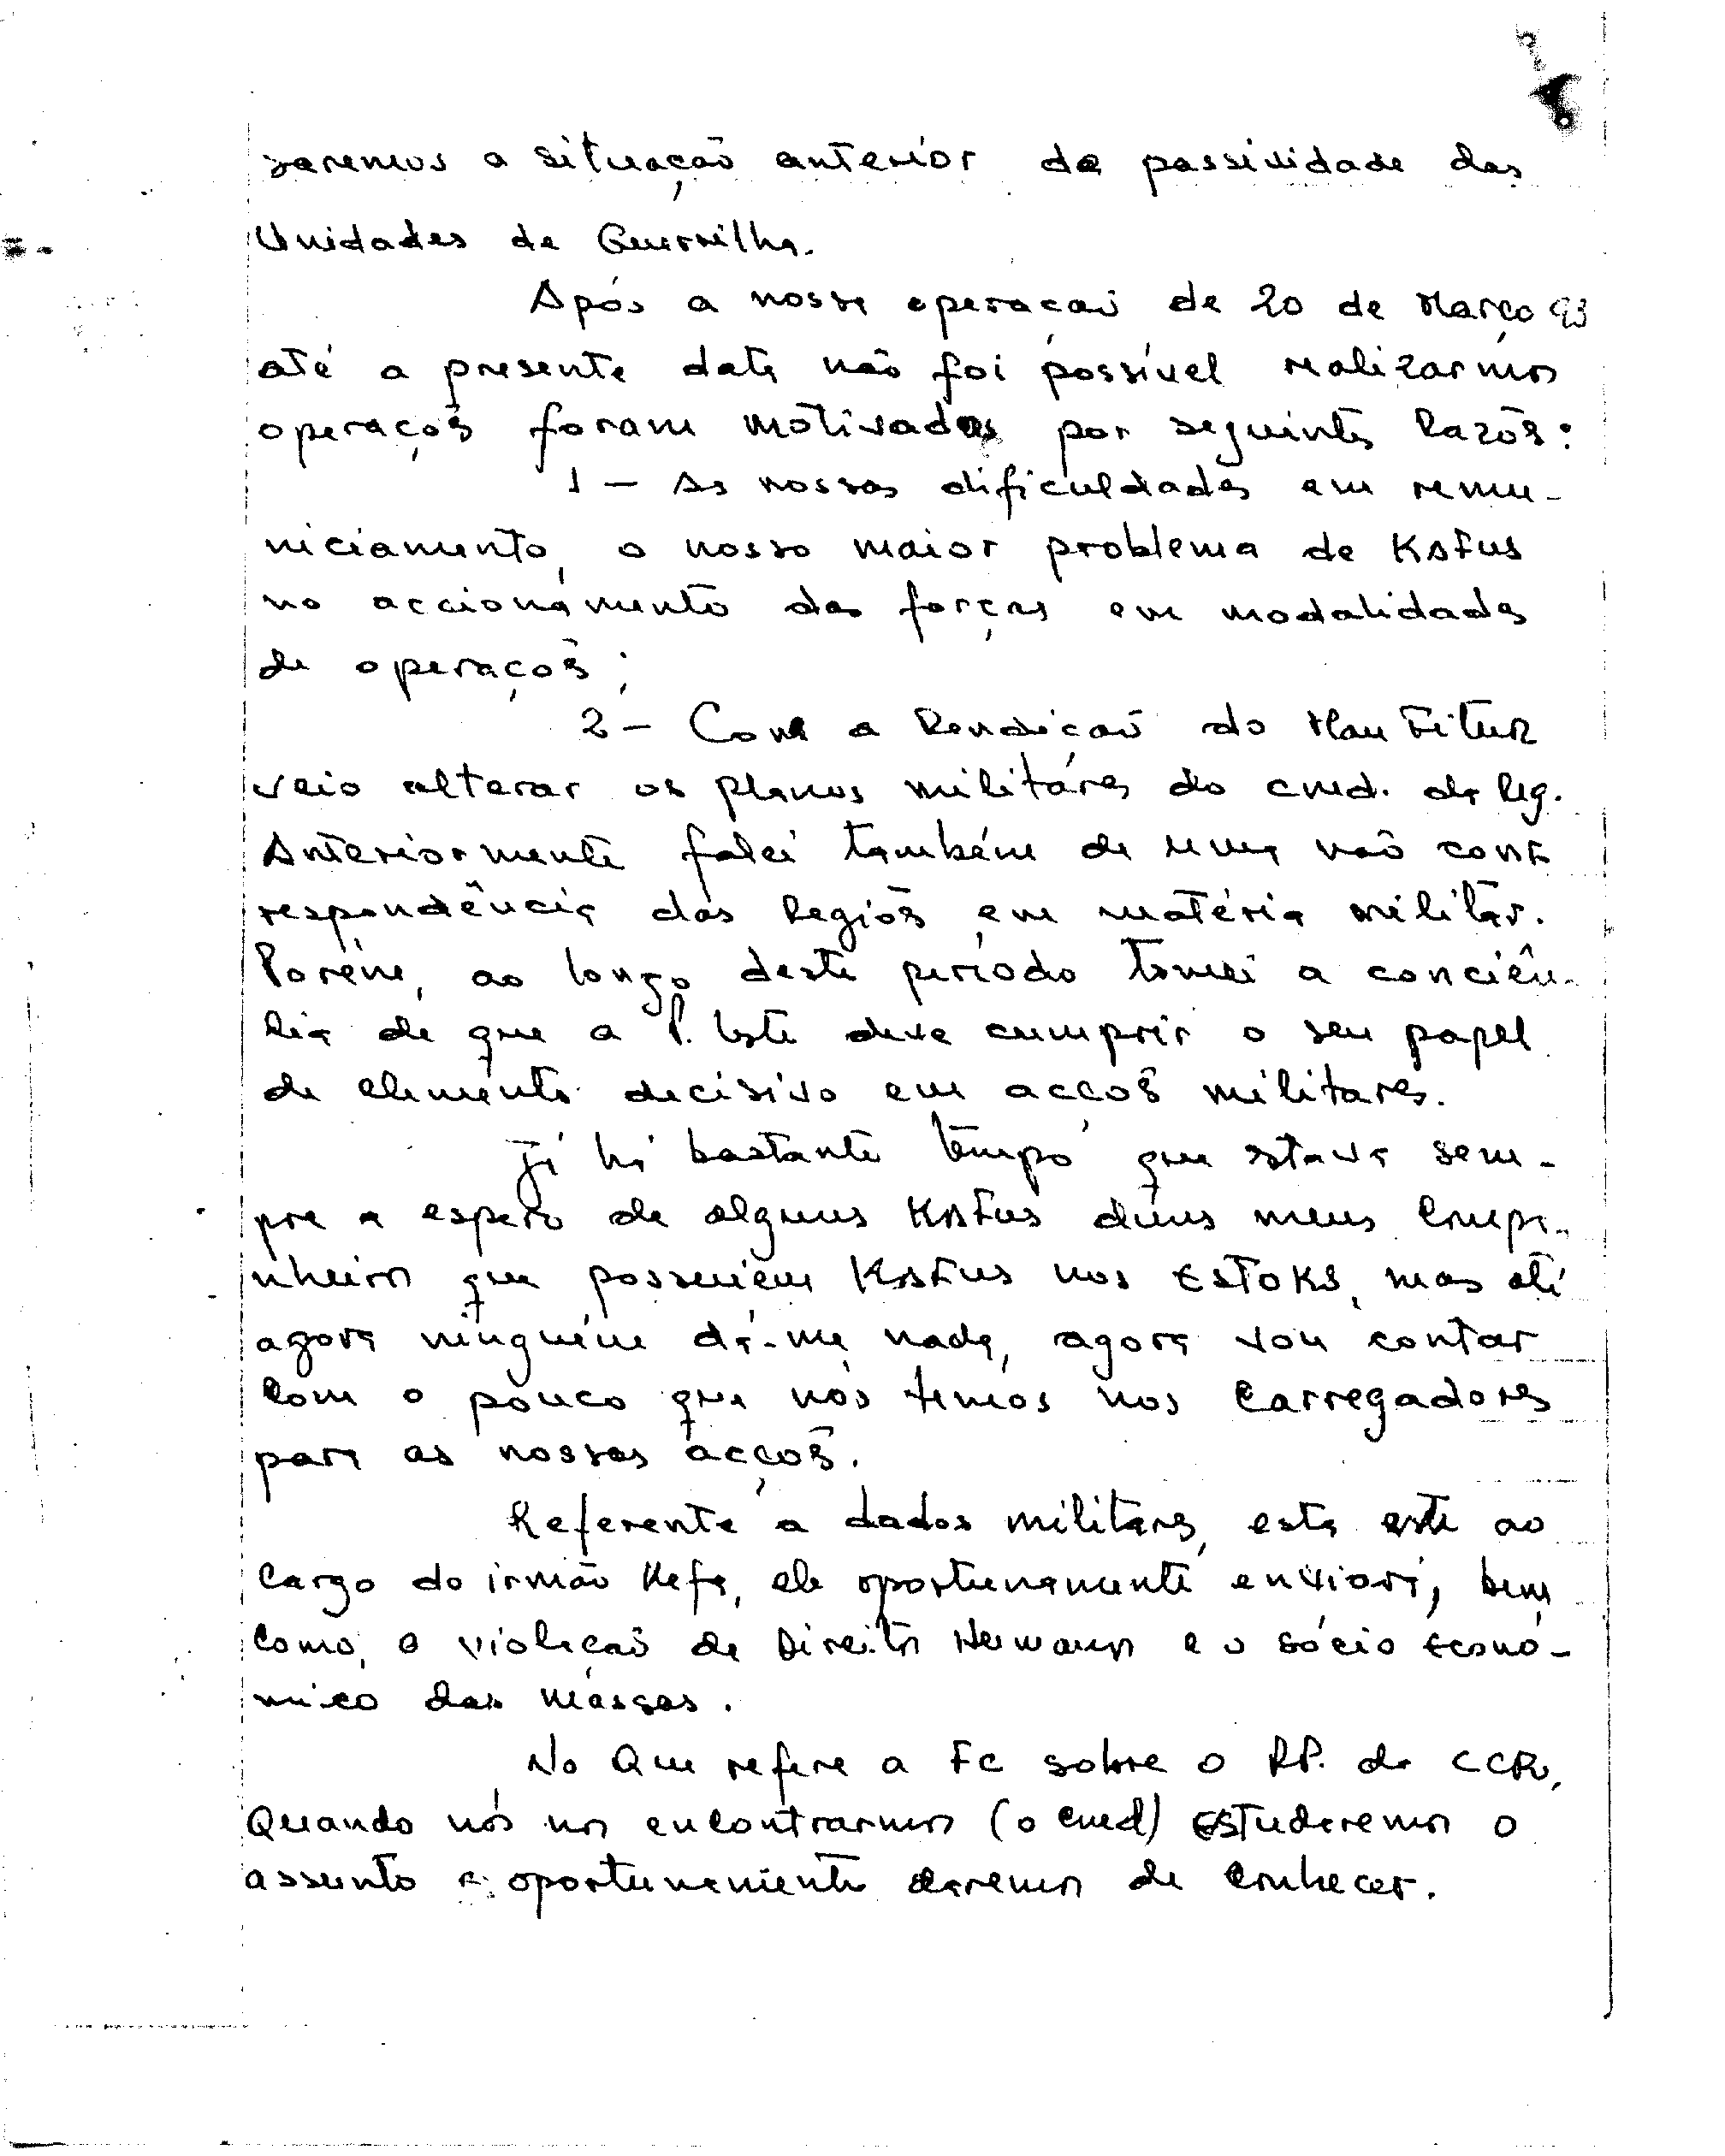 saremos a situação anterior da passividade das
Unidades de Guerrilha.
Após a nossa operaçaõ de 20 de Março 93
até a presente data não foi possível realizarmos
operaçoẽs foram motivadas por seguintes Razoẽs:
1 - As nossas dificuldades em remu-
niciamento, o nosso maior problema de KAFus
no accionamento das forças em modalidades
de operaçoẽs;
2 - Com a Rendiçaõ do Mau Fitun
veio alterar os planos militáres do cmd. da Reg.
Anteriormente falei também de uma não corr
respondência das Regioẽs em matéria militar.
Porém, ao longo deste período tomei a conciên-
cia de que a P. Leste deve cumprir o seu papel
de elemento decisivo em acçoẽs militares.
Já há bastante tempo que estava sem-
pre a espera de alguns KAFus duns meus Compa-
nheiros que possuiem KAFus nos EsToKs, mas até
agora ninguém dá-me nada, agora vou contar
com o pouco que nós temos nos Carregadores
para as nossas acçoẽs.
Referente a dados militares, esta este ao
Cargo do irmão Kefa, ele oportunamente enviará, bem
como, a violaçaõ de Direitos Humanos e o sócio Econó-
mico das massas.
No Que refere a Fc sobre o RP. do CCR,
Quando nós nos encontrarmos (o cmd) EsTudaremos o
assunto e oportunamente daremos de conhecer.